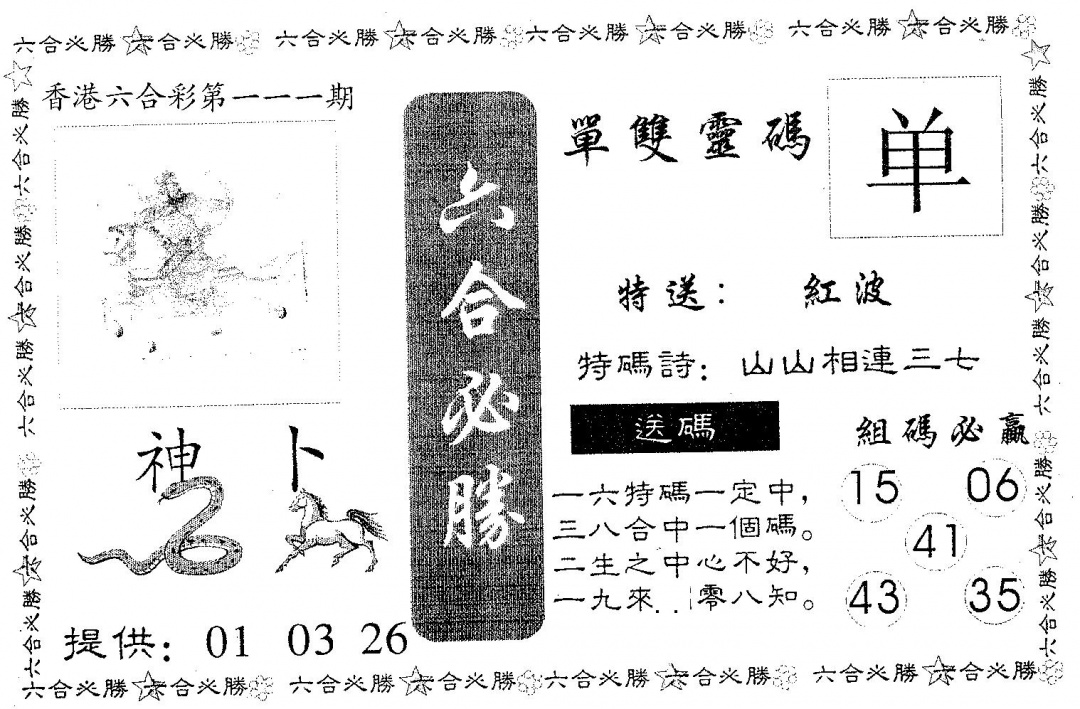 六合必勝☆六合必勝 六合必勝☆六合必勝 六合必勝☆六合必勝 六合必勝☆六合必勝
香港六合彩第一一一期
神 卜
提供：01 03 26
六合必勝
單雙靈碼
单
特送：紅波
特碼詩：山山相連三七
送碼
一六特碼一定中，
三八合中一個碼。
二生之中心不好，
一九來..零八知。
組碼必贏
15 06
41
43 35
六合必勝☆六合必勝 六合必勝☆六合必勝 六合必勝☆六合必勝 六合必勝☆六合必勝
六合必勝☆六合必勝 六合必勝☆六合必勝
六合必勝☆六合必勝 六合必勝☆六合必勝